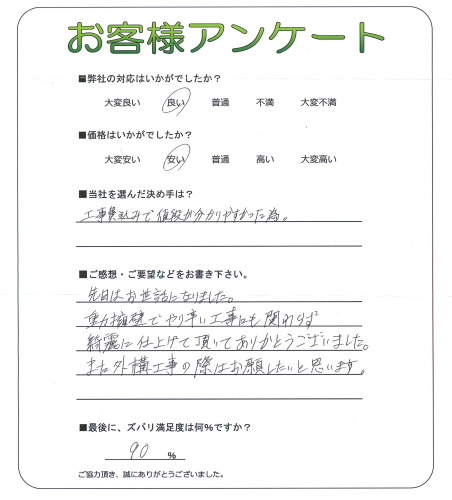 お客様アンケート
■弊社の対応はいかがでしたか？
大変良い 良い 普通 不満 大変不満
■価格はいかがでしたか？
大変安い 安い 普通 高い 大変高い
■当社を選んだ決め手は？
工事費込みで値段が分かりやすかった為。
■ご感想・ご要望などをお書き下さい。
先日はお世話になりました。
重力擁壁でやり辛い工事にも関わらず
綺麗に仕上げて頂いてありがとうございました。
また外構工事の際はお願したいと思います。
■最後に、ズバリ満足度は何%ですか？
90 %
ご協力頂き、誠にありがとうございました。